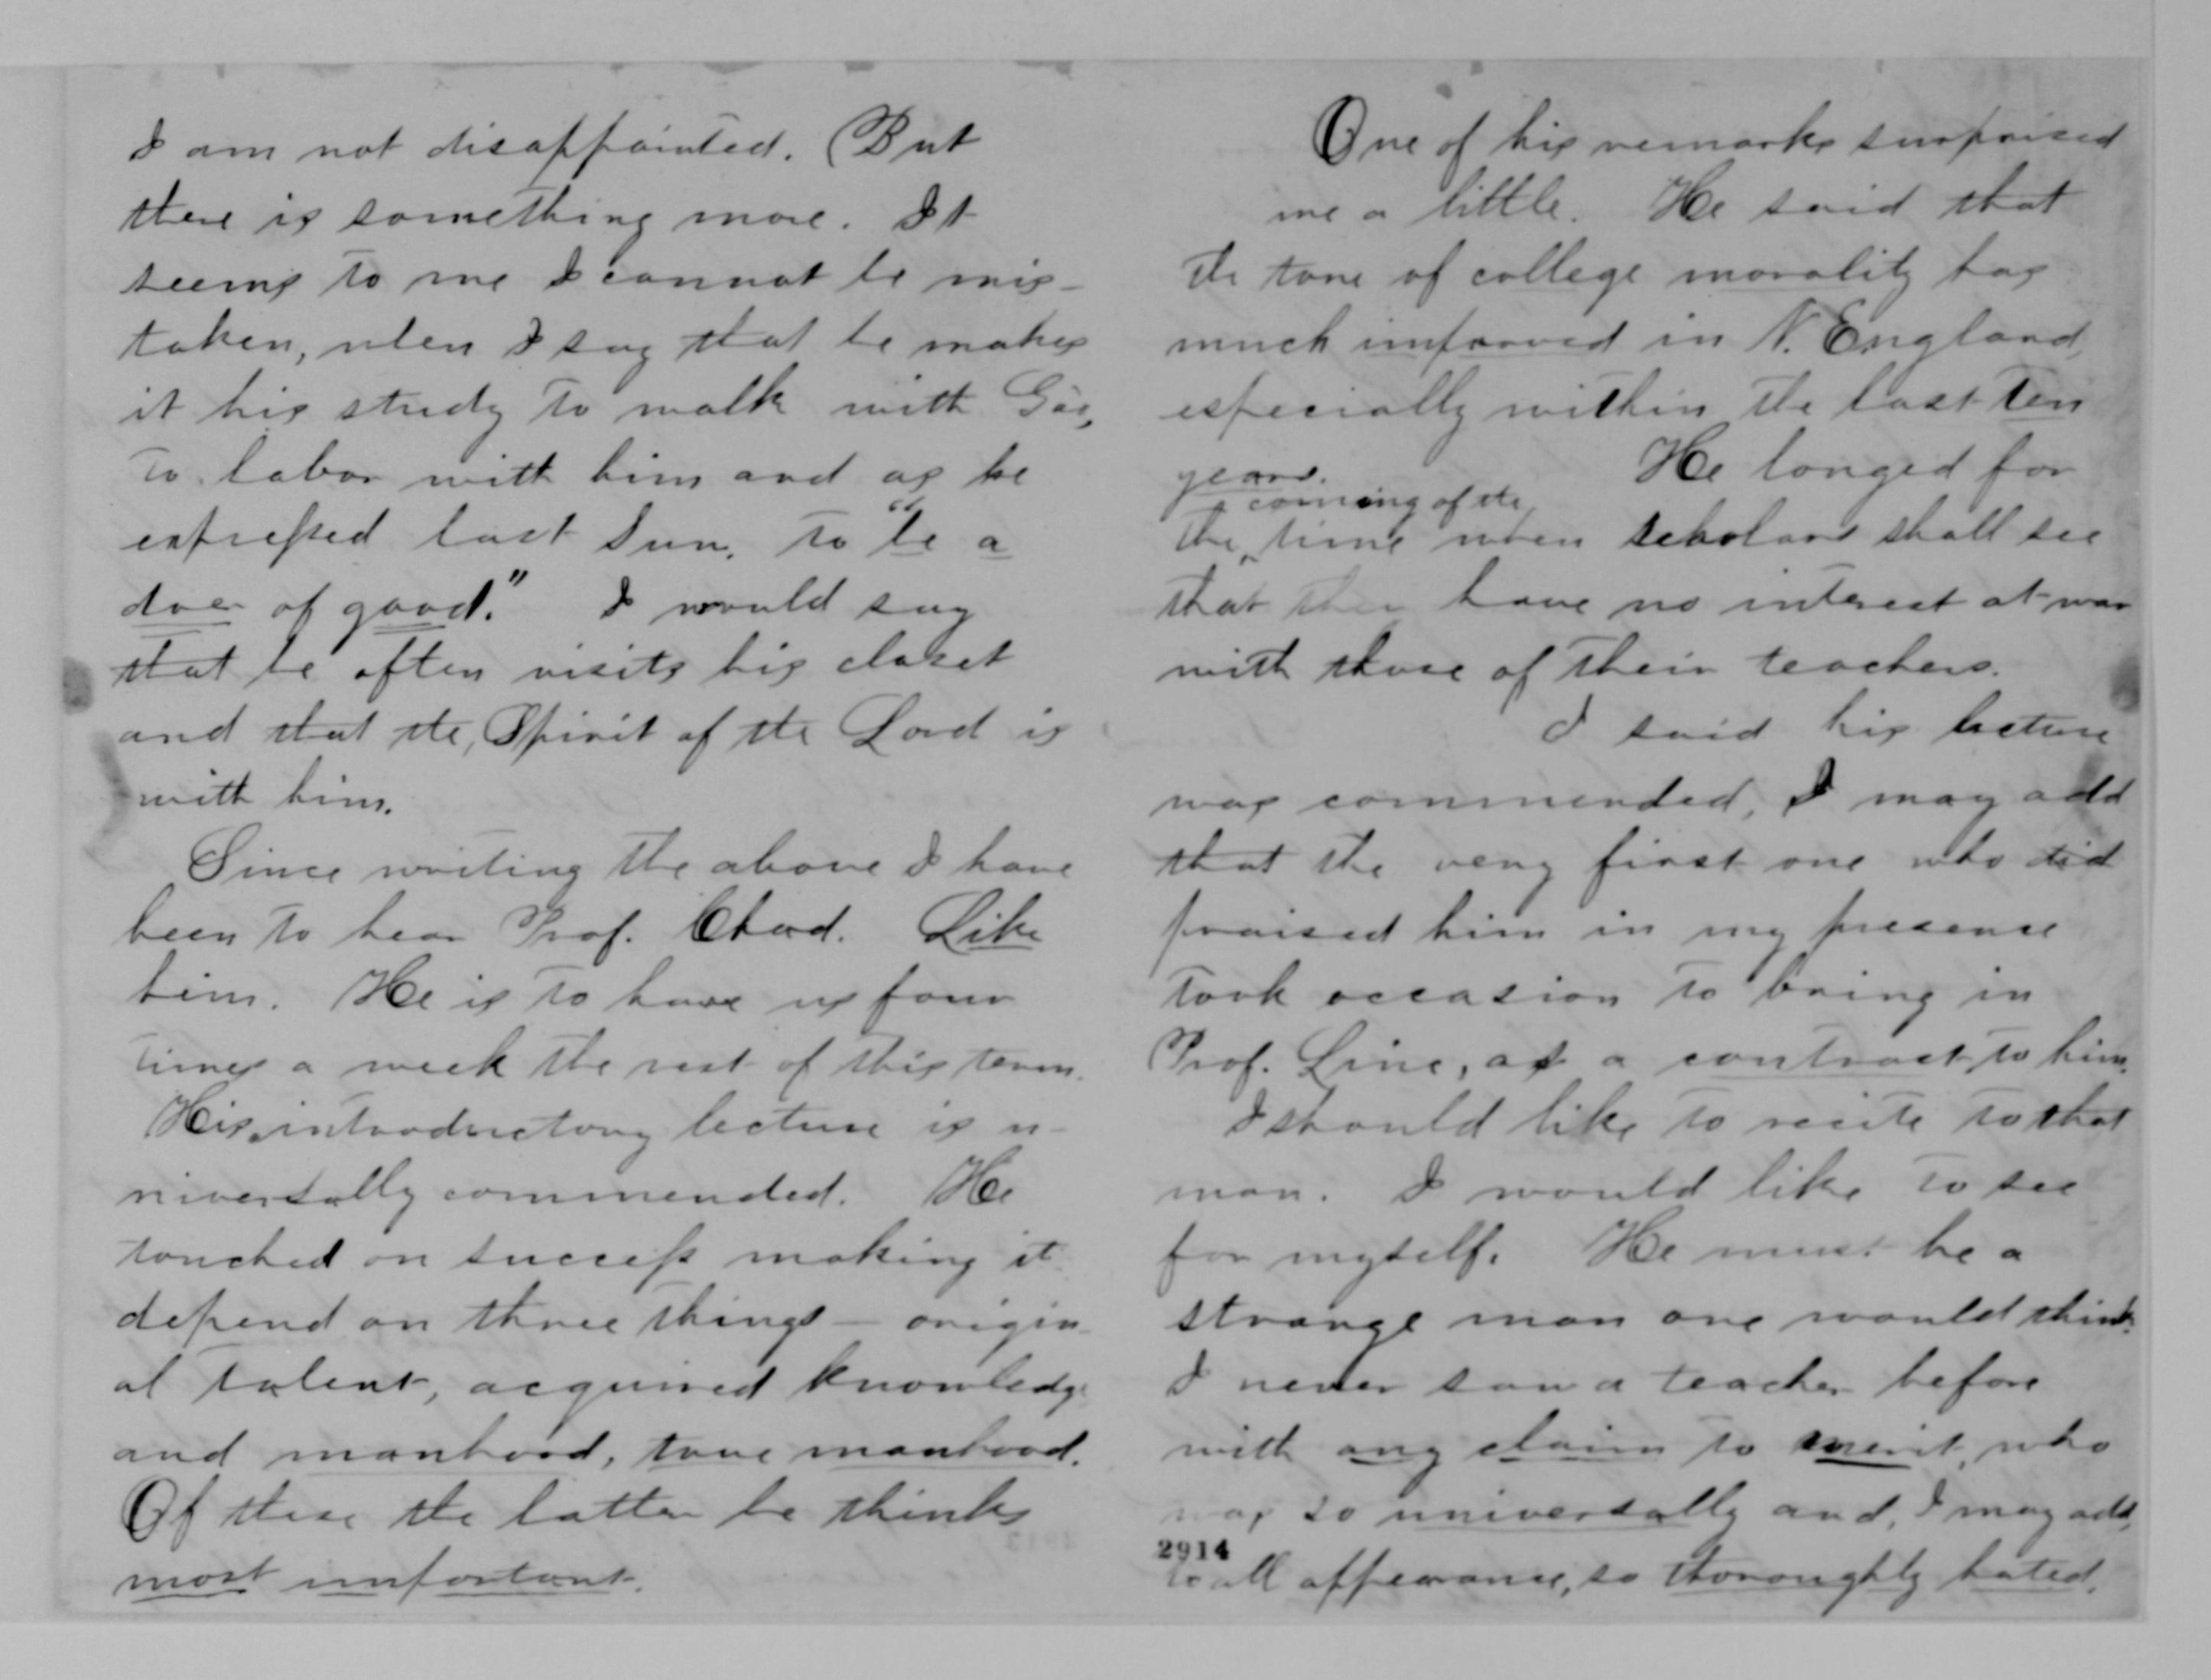 I am not disappointed. But
there is something more. It
seems to me I cannot be mis-
taken, when I say that he makes
it his study to walk with God,
to labor with him and as he
expressed last Sun. to "be a
doer of good." I would say
that he often visits his closet
and that the, Spirit of the Lord is
with him.
Since writing the above I have
been to hear Prof. Chad. Like
him. He is to have us four
times a week the rest of this term.
His introductory lecture is u-
niversally commended. He
touched on success making it
depend on three things — origin-
al talent, acquired knowledge
and manhood, true manhood.
Of these the latter he thinks
most important.
One of his remarks surprised
me a little. He said that
the tone of college morality has
much improved in N. England,
especially within the last ten
years. He longed for
coming of the
the time when scholars shall see
that they have no interest at war
with those of their teachers.
I said his lecture
was commended, I may add
that the very first one who did
praised him in my presence
took occasion to bring in
Prof. Linc, as a contrast to him.
I should like to recite to that
man. I would like to see
for myself. He must be a
strange man one would think.
I never saw a teacher before
with any claim to merit, who
was so universally and, I may add,
2914
to all appearance, so thoroughly hated.